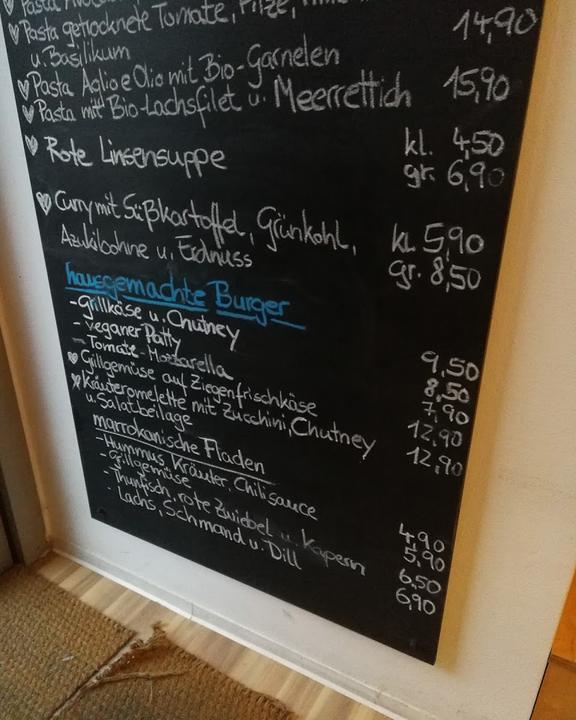 ♥ Pasta
♥ Pasta getrocknete Tomate, Pilze,
u. Basilikum 14,90
♥ Pasta Aglio e Olio mit Bio-Garnelen
♥ Pasta mit Bio-Lachsfilet u. Meerrettich 15,90
♥ Rote Linsensuppe kl. 4,50
gr. 6,90
♥ Curry mit Süßkartoffel, Grünkohl,
Azukibohne u. Erdnuss kl. 5,90
gr. 8,50
hausgemachte Burger
- Grillkäse u. Chutney 9,50
- veganer Patty 8,50
- Tomate-Mozzarella 7,90
♥ Grillgemüse auf Ziegenfrischkäse 12,90
♥ Kräuteromelette mit Zucchini, Chutney
u. Salatbeilage 12,90
marrokanische Fladen
- Hummus, Kräuter Chilisauce 4,90
- Grillgemüse 5,90
- Thunfisch, rote Zwiebel u. Kapern 6,50
- Lachs, Schmand u. Dill 6,90